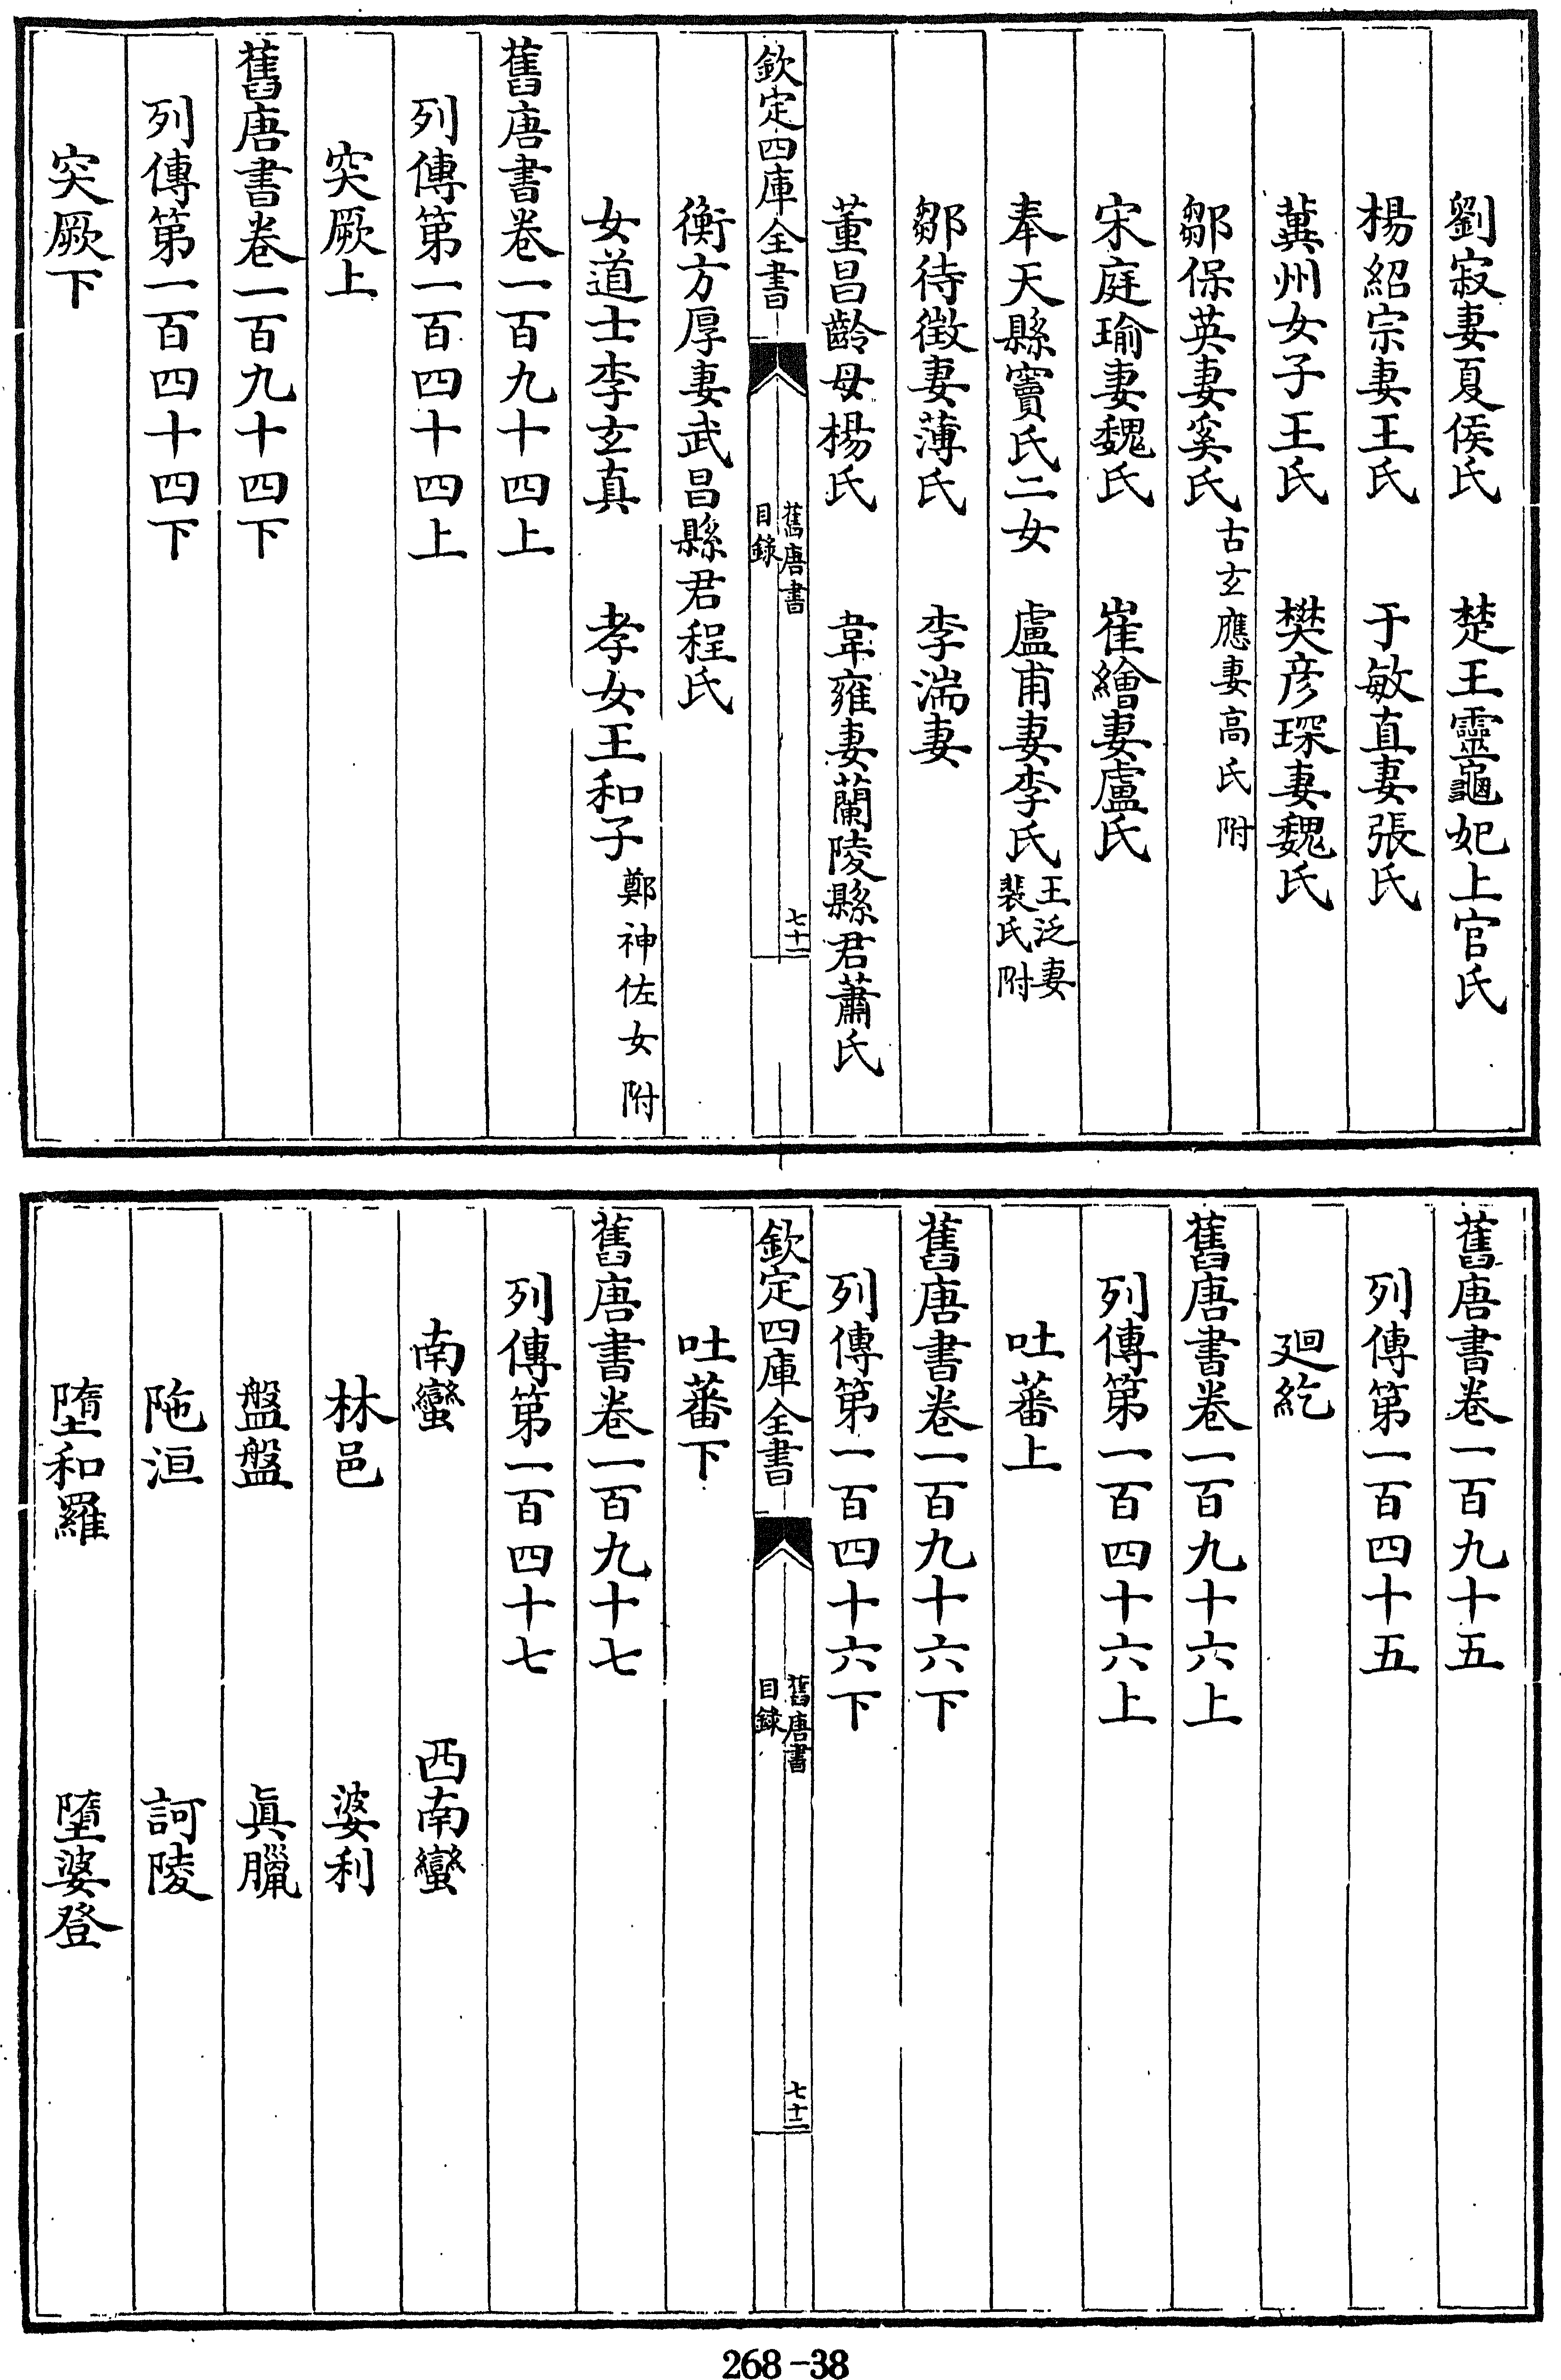 劉寂妻夏侯氏　楚王靈龜妃上官氏
楊紹宗妻王氏　于敏直妻張氏
冀州女子王氏　樊彦琛妻魏氏
鄒保英妻奚氏古玄應妻高氏附
宋庭瑜妻魏氏　崔繪妻盧氏
奉天縣竇氏二女　盧甫妻李氏王泛妻裴氏附
鄒待徴妻薄氏　李湍妻
董昌齡母楊氏　韋雍妻蘭陵縣君蕭氏
欽定四庫全書　舊唐書目錄　七十一
衡方厚妻武昌縣君程氏
女道士李玄真　孝女王和子鄭神佐女附
舊唐書卷一百九十四上
列傳第一百四十四上
突厥上
舊唐書卷一百九十四下
列傳第一百四十四下
突厥下
舊唐書卷一百九十五
列傳第一百四十五
廻紇
舊唐書卷一百九十六上
列傳第一百四十六上
吐蕃上
舊唐書卷一百九十六下
列傳第一百四十六下
欽定四庫全書　舊唐書目錄　七十二
吐蕃下
舊唐書卷一百九十七
列傳第一百四十七
南蠻　西南蠻
林邑　婆利
盤盤　眞臘
陁洹　訶陵
墮和羅　墮婆登
268-38